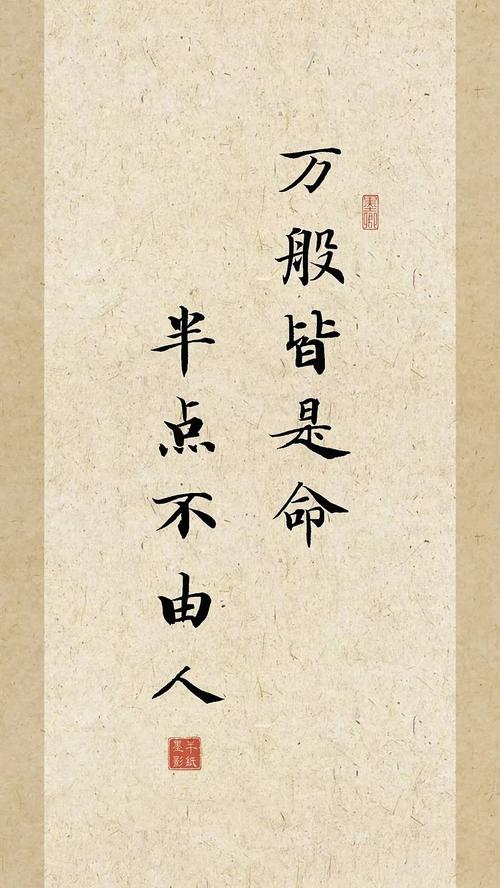 万般皆是命
半点不由人
墨卿
半纸墨影